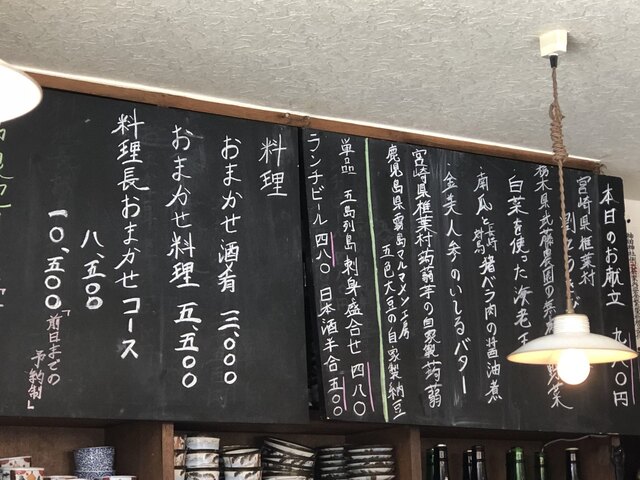 本日のお献立 九八〇円
宮崎県椎葉村
栃木県武藤農園の無
野菜
白菜を使った海老
南瓜と長崎対馬猪バラ肉の醤油煮
金美人参のいしるバター
宮崎県椎葉村蒟蒻芋の自家製蒟蒻
鹿児島県霧島マルマメン工房
五色大豆の自家製納豆
単品 五島列島刺身盛合せ 四八〇
ランチビール 四八〇 日本酒半合 五〇〇
料理
おまかせ酒肴 三、〇〇〇
おまかせ料理 五、五〇〇
料理長おまかせコース
八、五〇〇
一〇、五〇〇
「前日までの
予約制」